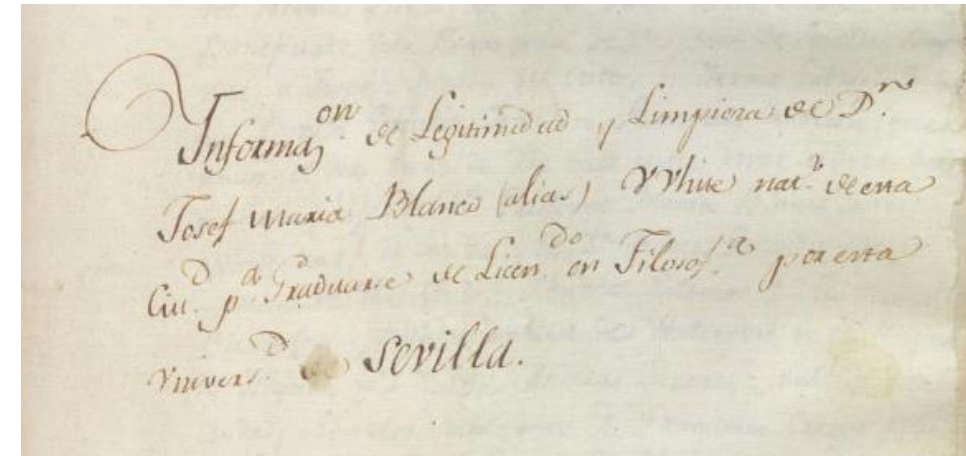 Informaz.on de Legitimidad y Limpieza de D.n
Josef Maria Blanco (alias) White nat.l de esta
Ciu.d p.a Graduarse de Licen.do en Filosof.a por esta
Univers.d de Sevilla.